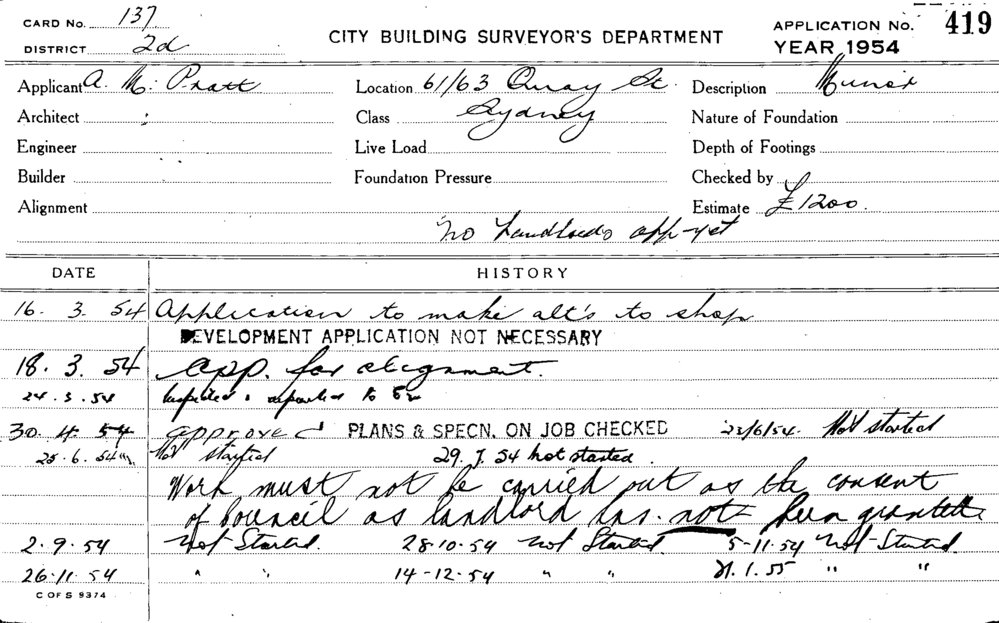 CARD NO. 137
DISTRICT 2d
CITY BUILDING SURVEYOR'S DEPARTMENT
APPLICATION NO. 419
YEAR 1954
Applicant A. M. Pratt Location 61/63 Quay St. Description Minor
Architect Class Sydney Nature of Foundation
Engineer Live Load Depth of Footings
Builder Foundation Pressure Checked by
Alignment Estimate £1200.
No Landlords app yet
DATE HISTORY
16. 3. 54 Application to make alt's to shop
DEVELOPMENT APPLICATION NOT NECESSARY
18. 3. 54 app. for alignment.
24. 3. 54 Inspected & reported to
30. 4. 54 approved PLANS & SPECN. ON JOB CHECKED 23/6/54. Not started
25. 6. 54 Not started 29. 7. 54 not started.
Work must not be carried out as the consent
of Council as landlord has not been granted
2. 9. 54 Not Started. 28-10-54 Not Started. 5-11.54 Not Started.
26.11.54 " " 14-12-54 " " 21.1.55 " "
C OF S 9374